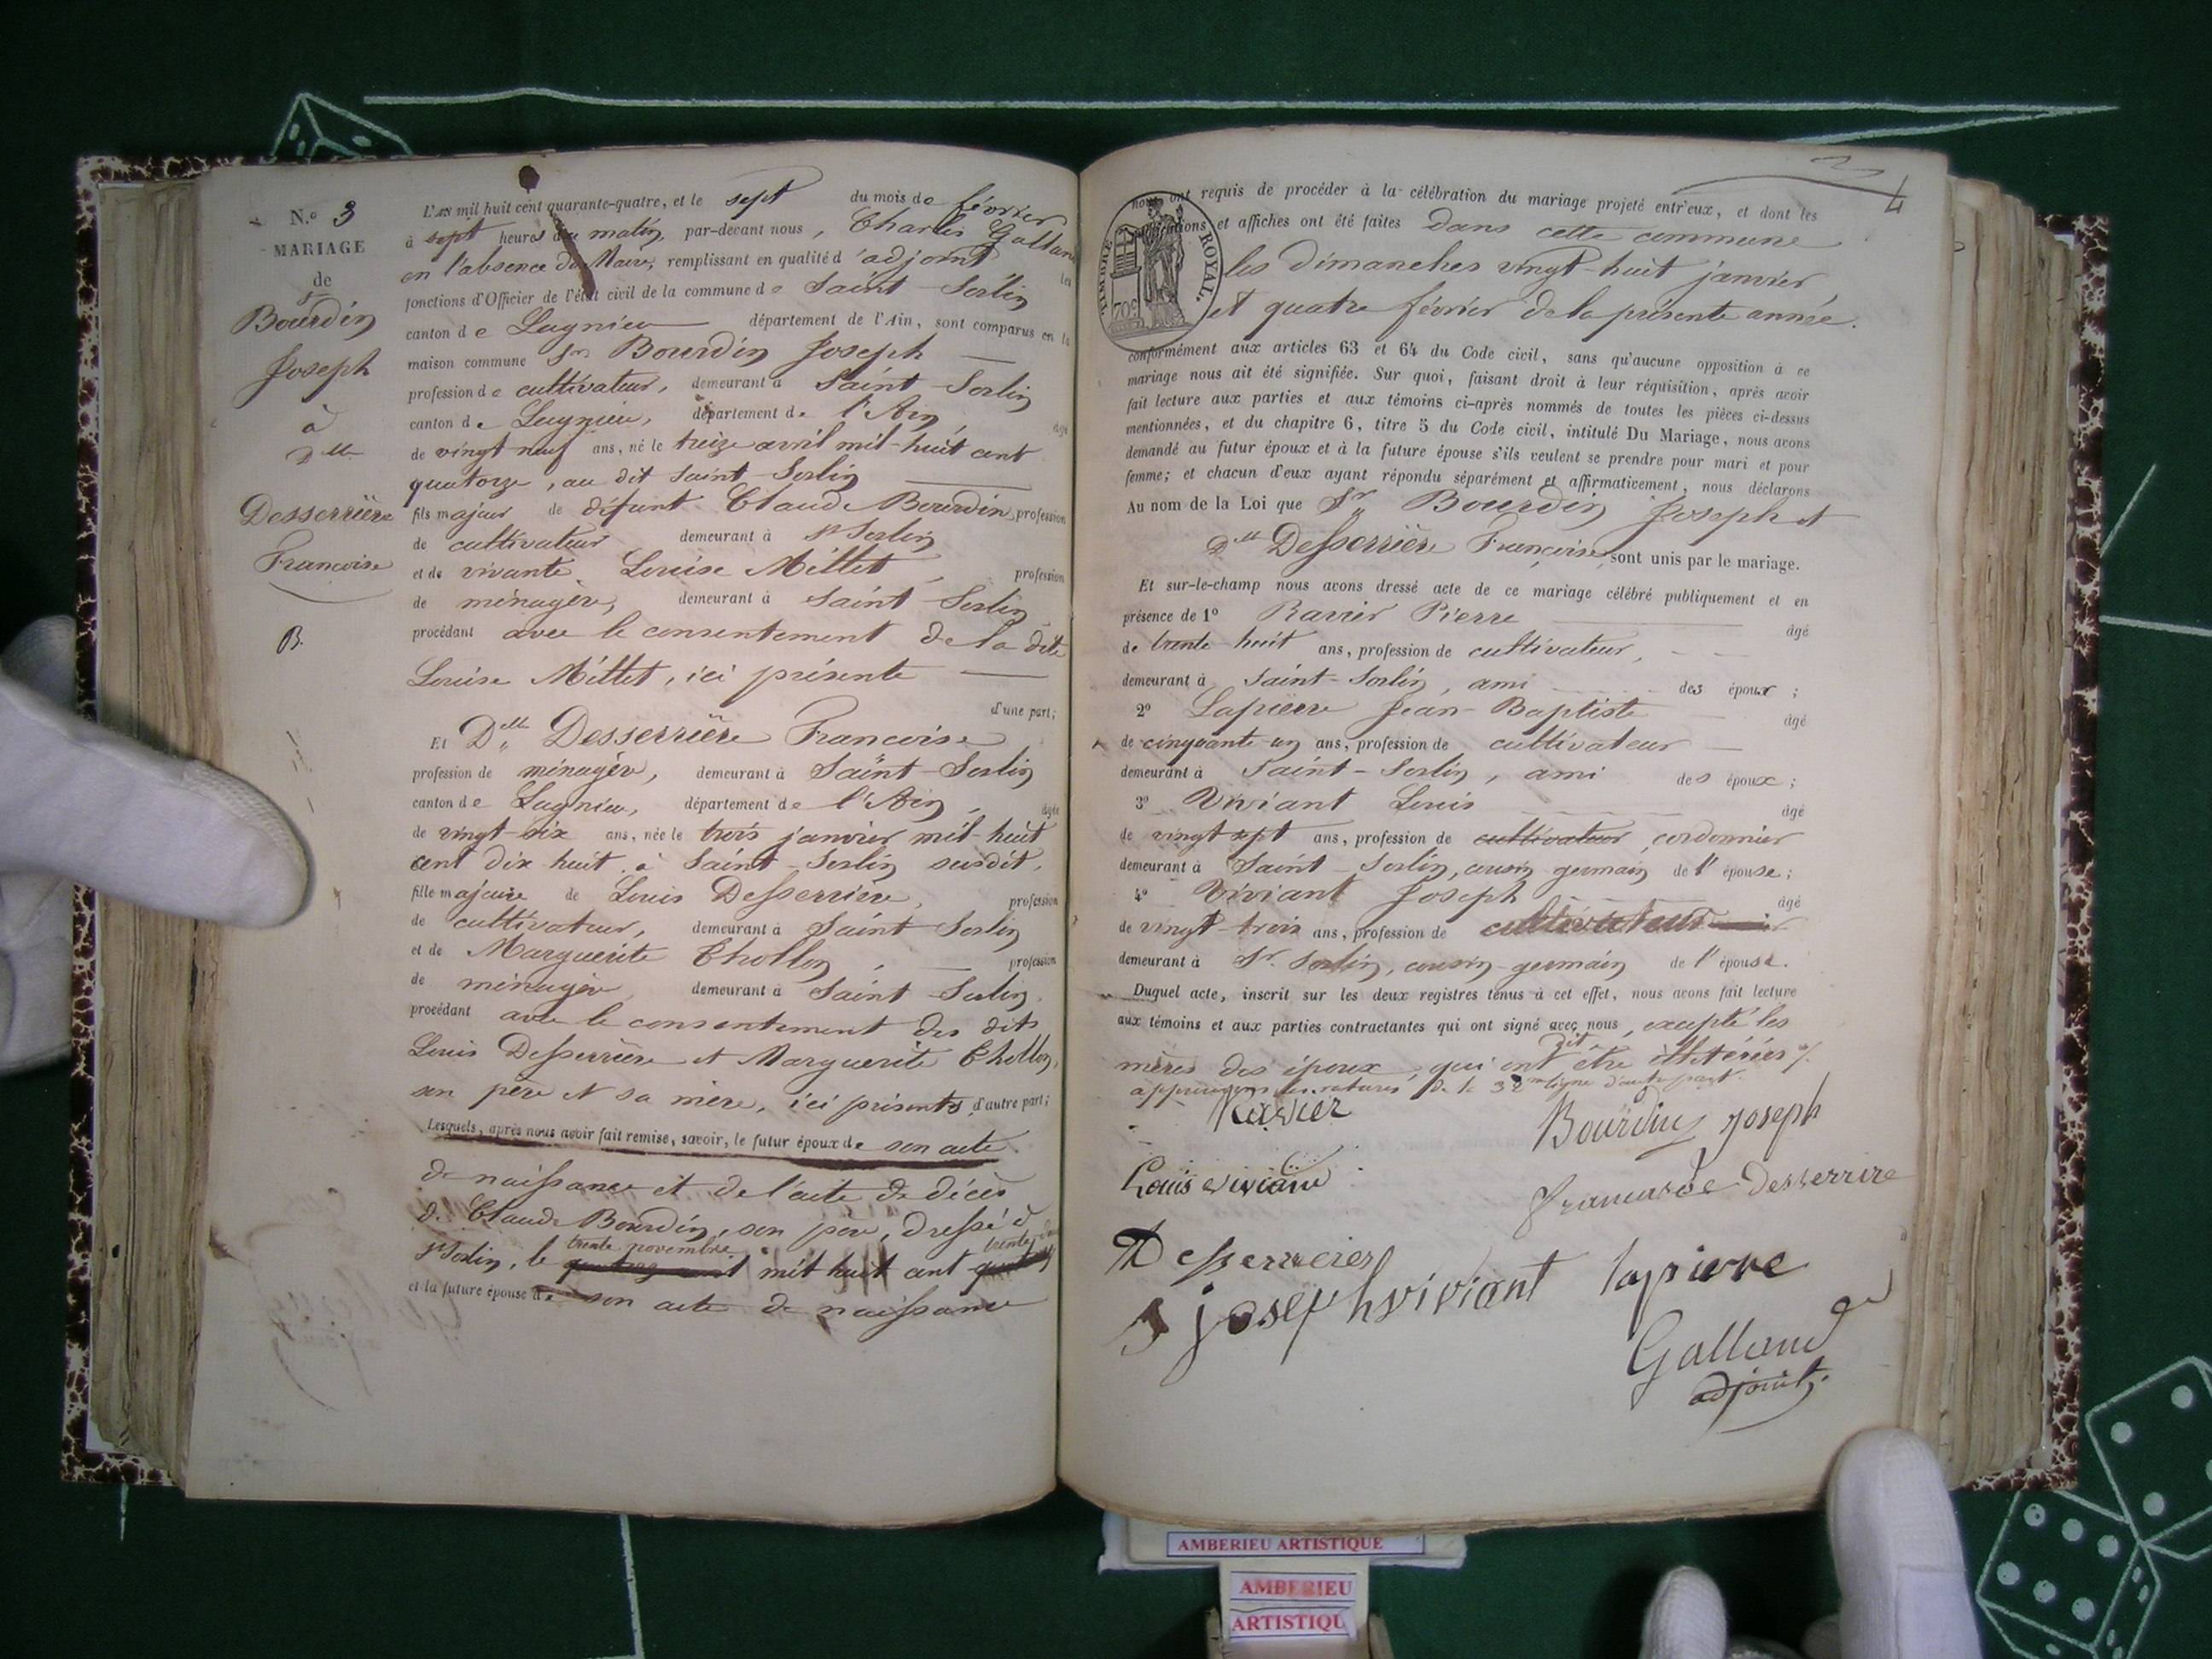 N.º 3
MARIAGE
de
Sr
Bourdin
Joseph
à
Dlle
Desserrière
Francoise
B.
L'AN mil huit cent quarante-quatre, et le sept du mois de février
à sept heures du matin, par-devant nous, Charles Galland
en l'absence du Maire, remplissant en qualité d'adjoint les
fonctions d'Officier de l'état civil de la commune de Saint-Sorlin
canton de Lagnieu département de l'Ain, sont comparus en la
maison commune Sr Bourdin Joseph
profession de cultivateur, demeurant à Saint-Sorlin
canton de Lagnieu, département de l'Ain âgé
de vingt-neuf ans, né le treize avril mil-huit cent
quatorze, au dit Saint-Sorlin
fils majeur de défunt Claude Bourdin, profession
de cultivateur demeurant à St Sorlin
et de vivante Louise Millet, profession
de ménagère, demeurant à Saint-Sorlin
procédant avec le consentement de la dite
Louise Millet, ici présente
d'une part;
Et Dlle Desserrière Francoise
profession de ménagère, demeurant à Saint-Sorlin
canton de Lagnieu, département de l'Ain, âgée
de vingt-six ans, née le trois janvier mil-huit
cent dix-huit à Saint-Sorlin susdit,
fille majeure de Louis Desserrière, profession
de cultivateur, demeurant à Saint Sorlin
et de Marguerite Chollon, profession
de ménagère demeurant à Saint-Sorlin,
procédant avec le consentement des dits
Louis Desserrière et Marguerite Chollon,
son père et sa mère, ici présents, d'autre part;
Lesquels, après nous avoir fait remise, savoir, le futur époux de son acte
de naissance et de l'acte de décès
de Claude Bourdin, son père, dressé à
St Sorlin, le trente novembre mil huit cent trente
et la future épouse de son acte de naissance
4
TIMBRE ROYAL
70c
nous ont requis de procéder à la célébration du mariage projeté entr'eux, et dont les
publications et affiches ont été faites dans cette commune
les dimanches vingt-huit janvier
et quatre février de la présente année.
conformément aux articles 63 et 64 du Code civil, sans qu'aucune opposition à ce
mariage nous ait été signifiée. Sur quoi, faisant droit à leur réquisition, après avoir
fait lecture aux parties et aux témoins ci-après nommés de toutes les pièces ci-dessus
mentionnées, et du chapitre 6, titre 5 du Code civil, intitulé Du Mariage, nous avons
demandé au futur époux et à la future épouse s'ils veulent se prendre pour mari et pour
femme; et chacun d'eux ayant répondu séparément et affirmativement, nous déclarons
Au nom de la Loi que Sr Bourdin Joseph et
Dlle Desserrière Françoise, sont unis par le mariage.
Et sur-le-champ nous avons dressé acte de ce mariage célébré publiquement et en
présence de 1º Ravier Pierre âgé
de trente-huit ans, profession de cultivateur,
demeurant à Saint-Sorlin, ami des époux;
2º Lapierre Jean-Baptiste âgé
de cinquante-un ans, profession de cultivateur
demeurant à Saint-Sorlin, ami des époux;
3º Viviant Louis âgé
de vingt-sept ans, profession de cultivateur, cordonnier
demeurant à Saint-Sorlin, cousin germain de l'épouse;
4º Viviant Joseph âgé
de vingt-trois ans, profession de cultivateur
demeurant à St. Sorlin, cousin-germain de l'épouse.
Duquel acte, inscrit sur les deux registres tenus à cet effet, nous avons fait lecture
aux témoins et aux parties contractantes qui ont signé avec nous, excepté les
mères des époux, qui ont dit être illétérées
approuvons les ratures de la 32me ligne d'autre part.
Ravier
Bourdin Joseph
Louis viviant
francoise Desserrire
Desserrieres
joseph viviant
lapierre
Galland
adjoint
AMBERIEU ARTISTIQUE
AMBERIEU
ARTISTIQU